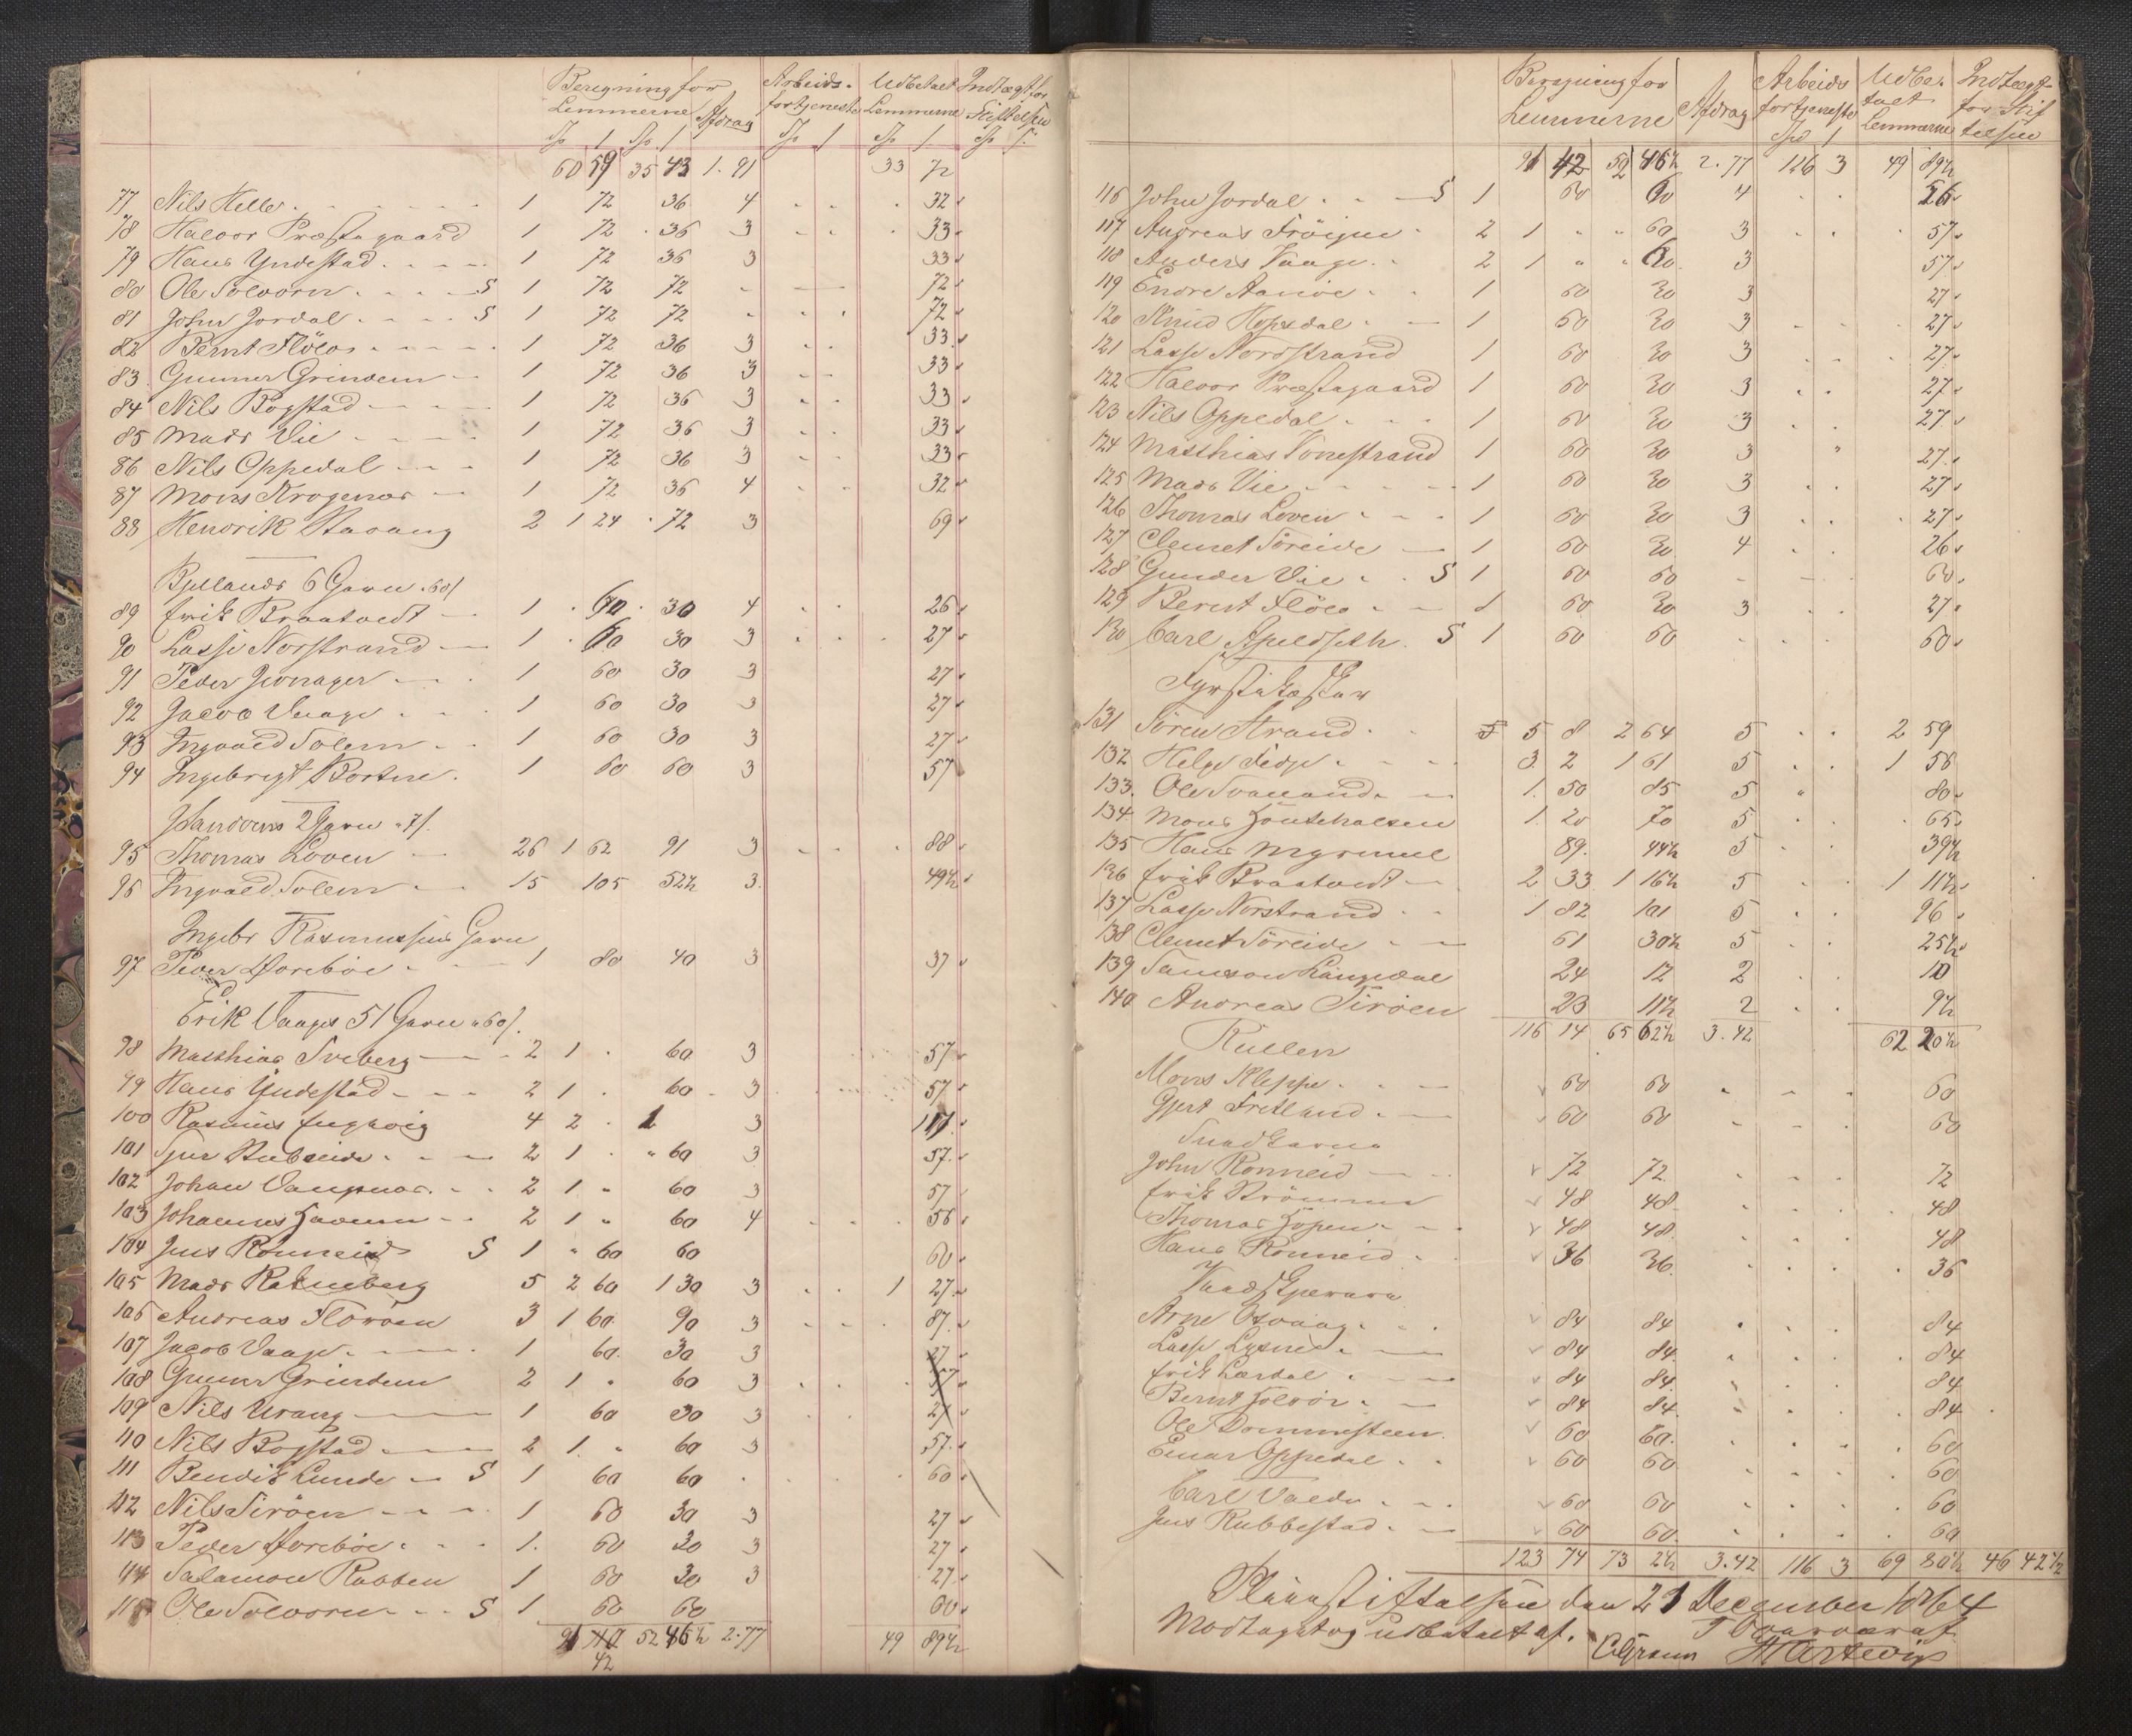 Beregning for Lemmerne Afdrag Arbeidsfortjeneste Udbetalt Lemmerne Indtægt for Stiftelsen
60 59 35 43 1.91 33 72
77 Nils Helle 1 72 36 4 32
78 Halvor Præstegaard 1 72 36 3 33
79 Hans Yndestad 1 72 36 3 33
80 Ole Solvorn S 1 72 72 72
81 John Jordal S 1 72 72 72
82 Bernt Flölo 1 72 36 3 33
83 Gunner Grindem 1 72 36 3 33
84 Nils Bogstad 1 72 36 3 33
85 Mads Vie 1 72 36 3 33
86 Nils Oppedal 1 72 36 3 33
87 Mons Krogenæs 1 72 36 4 32
88 Hendrik Stavang 2 1 24 72 3 69
6 Garn 60/
89 Erik Braatvedt 1 60 30 4 26
90 Lasse Norstrand 1 60 30 3 27
91 Peder 1 60 30 3 27
92 Jacob Vaage 1 60 30 3 27
93 Ingvald Solem 1 60 30 3 27
94 Ingebrigt Bortne 1 60 60 3 57
2 Garn 7/
95 Thomas Loven 26 1 62 91 3 88
96 Ingvald Solem 15 105 52½ 3 49½
Ingebr Rasmussens Garn
97 Peder Horeböe 1 80 40 3 37
Erik Vaages 51 Garn 60/
98 Matthias Sveberg 2 1 60 3 57
99 Hans Yndestad 2 1 60 3 57
100 Rasmus 4 2 1 3 117
101 2 1 60 3 57
102 Johan Vangsnæs 2 1 60 3 57
103 Johannes 2 1 60 4 56
104 Jens Ronneid S 1 60 60 60
105 Mads 5 2 60 1 30 3 1 27
106 Andreas Floröen 3 1 60 90 3 87
107 Jacob Vaage 1 60 30 3 27
108 Gunner Grindem 2 1 60 3 57
109 Nils Urang 1 60 30 3 27
110 Nils Bogstad 2 1 60 3 57
111 Bendik Lunde S 1 60 60 60
112 Nils Siröen 1 60 30 3 27
113 Peder Horeböe 1 60 30 3 27
114 Salamon Rabben 1 60 30 3 27
115 Ole Solvorn S 1 60 60 60
91 42 52 46½ 2.77 49 89½
Beregning for Lemmerne Afdrag Arbeidsfortjeneste Udbetalt Lemmerne Indtægt for Stiftelsen
91 42 52 46½ 2.77 116 3 49 89½
116 John Jordal S 1 60 60 4 56
117 Andreas 2 1 60 3 57
118 Anders Vaage 2 1 60 3 57
119 Endre Aamöe 1 60 30 3 27
120 Knud Hopsdal 1 60 30 3 27
121 Lasse Nordstrand 1 60 30 3 27
122 Halvor Præstegaard 1 60 30 3 27
123 Nils Oppedal 1 60 30 3 27
124 Matthias Tonestrand 1 60 30 3 27
125 Mads Vie 1 60 30 3 27
126 Thomas Loven 1 60 30 3 27
127 Clemet Söreide 1 60 30 4 26
128 Gunder Vie S 1 60 60 60
129 Bernt Flölo 1 60 30 3 27
130 Carl Apeldseth S 1 60 60 60
Fyrstikæsker
131 Sören Strand 5 8 2 64 5 2 59
132 Helge 3 2 1 61 5 1 56
133 Ole Svanand 1 50 85 5 80
134 Mons 1 20 70 5 65
135 Hans Myrmel 89 44½ 5 39½
136 Erik Braatvedt 2 33 1 16½ 5 1 11½
137 Lasse Norstrand 1 82 101 5 96
138 Clemet Söreide 61 30½ 5 25½
139 Samson Langedal 24 12 2 10
140 Andreas Siröen 23 11½ 2 9½
116 14 65 62½ 3.42 62 20½
Rullen
Mons Kleppe 60 60 60
Gjert Fretland 60 60 60
John Ronneid 72 72 72
Erik Strömmen 48 48 48
Thomas 48 48 48
Hans Ronneid 36 36 36
Arne 84 84 84
Lasse Lysne 84 84 84
Erik Lærdal 84 84 84
Bernt Solvor 84 84 84
Ole Drommesteen 60 60 60
Einar Oppedal 60 60 60
Carl 60 60 60
Jens Rubbestad 60 60 60
123 74 73 2½ 3.42 116 3 69 80½ 46 42½
Pleiestiftelsen den 21 December 1864
Modtaget og udbetalt af.